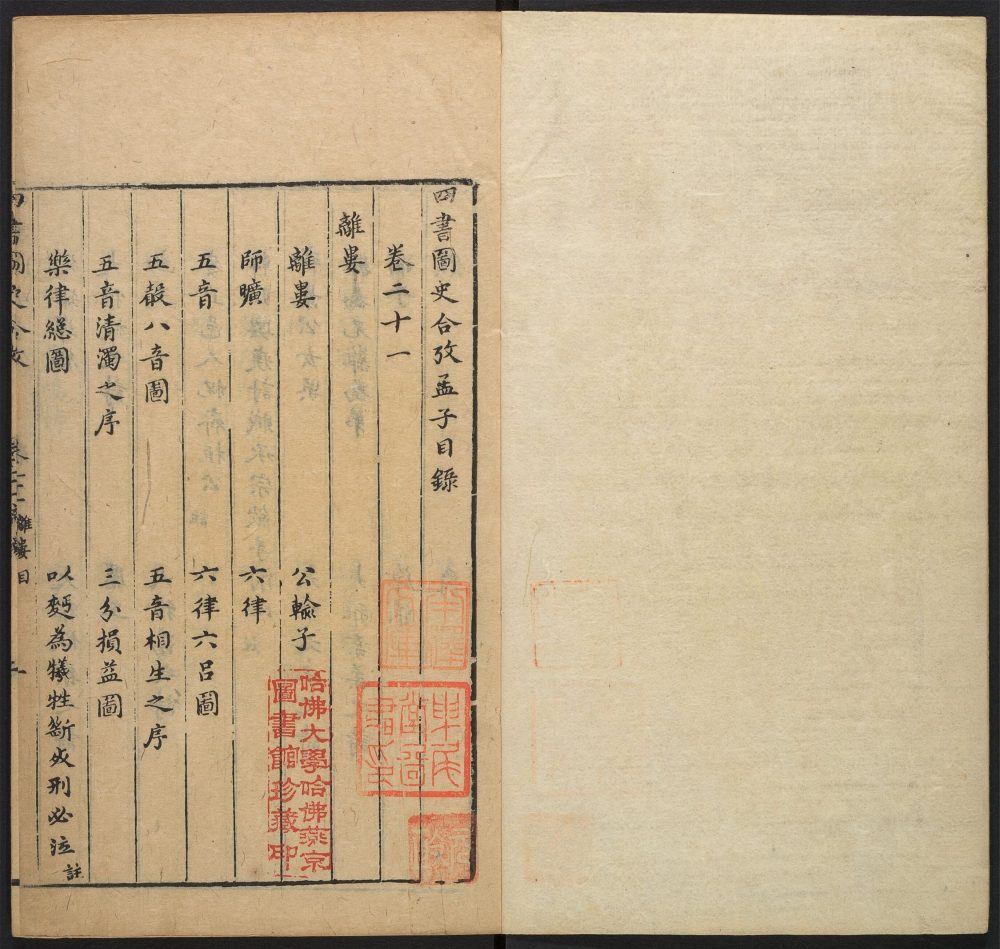 四書圖史合攷孟子目錄
卷二十一
離婁
離婁　公輸子
師曠　六律
五音　六律六呂圖
五聲八音圖　五音相生之序
五音清濁之序　三分損益圖
樂律總圖　以麪為犧牲斷死刑必泣註
四書圖史合攷　離婁目
哈佛大學哈佛燕京
圖書館珍藏印